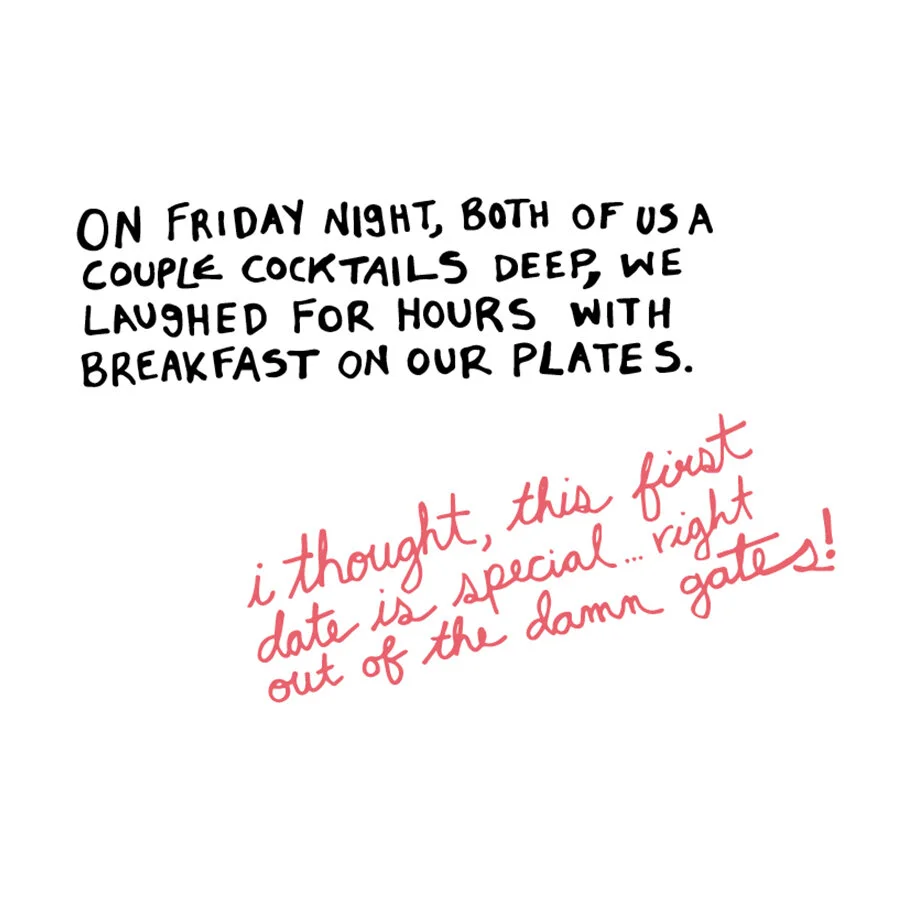 ON FRIDAY NIGHT, BOTH OF US A
COUPLE COCKTAILS DEEP, WE
LAUGHED FOR HOURS WITH
BREAKFAST ON OUR PLATES.
i thought, this first
date is special... right
out of the damn gates!